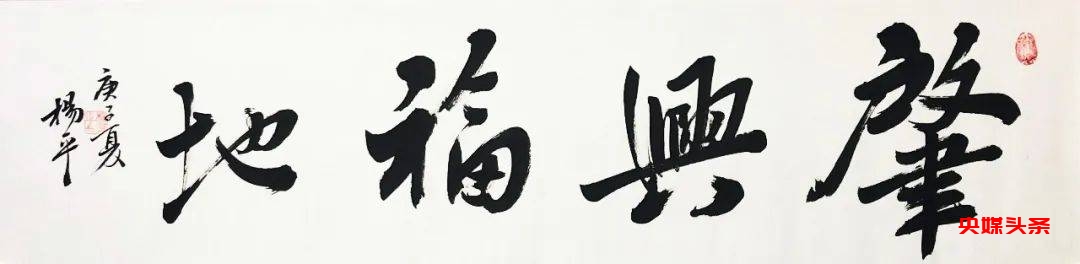 肇興福地
庚子夏
楊平
央媒头条